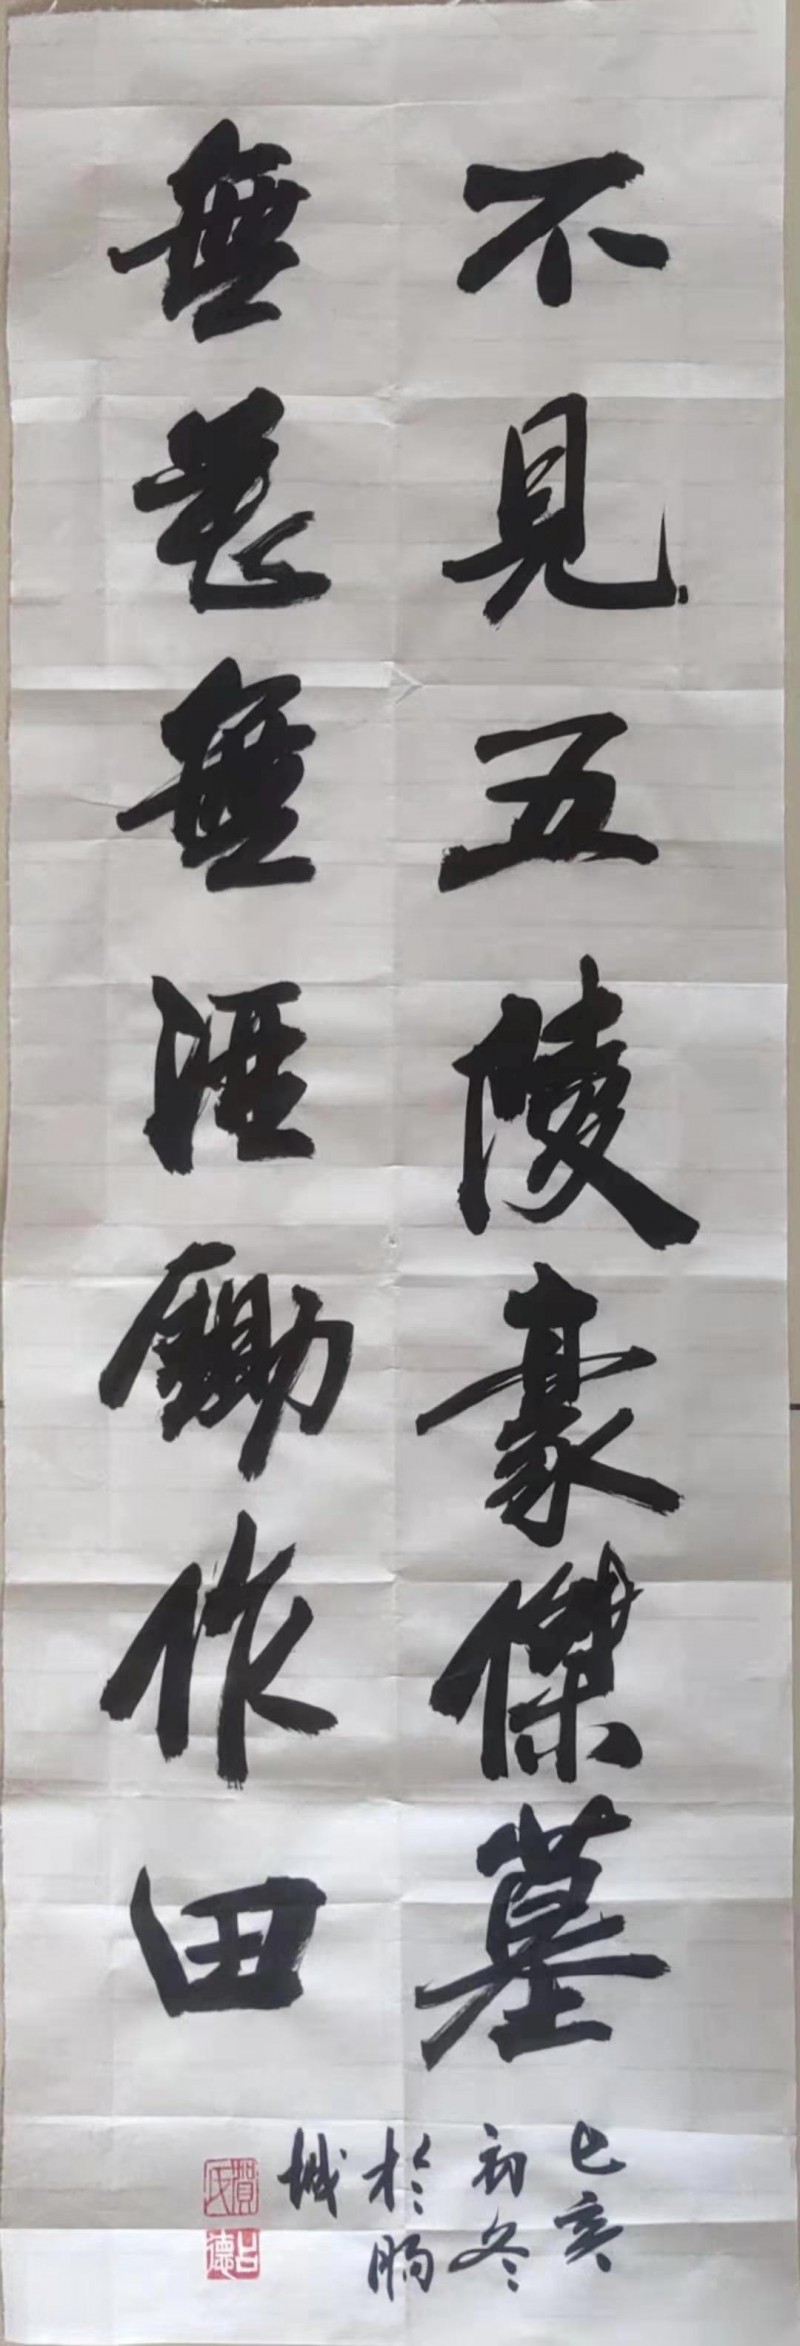 不見五陵豪傑墓
無花無酒鋤作田
己亥
初冬
於朐
城
賀氏
占德